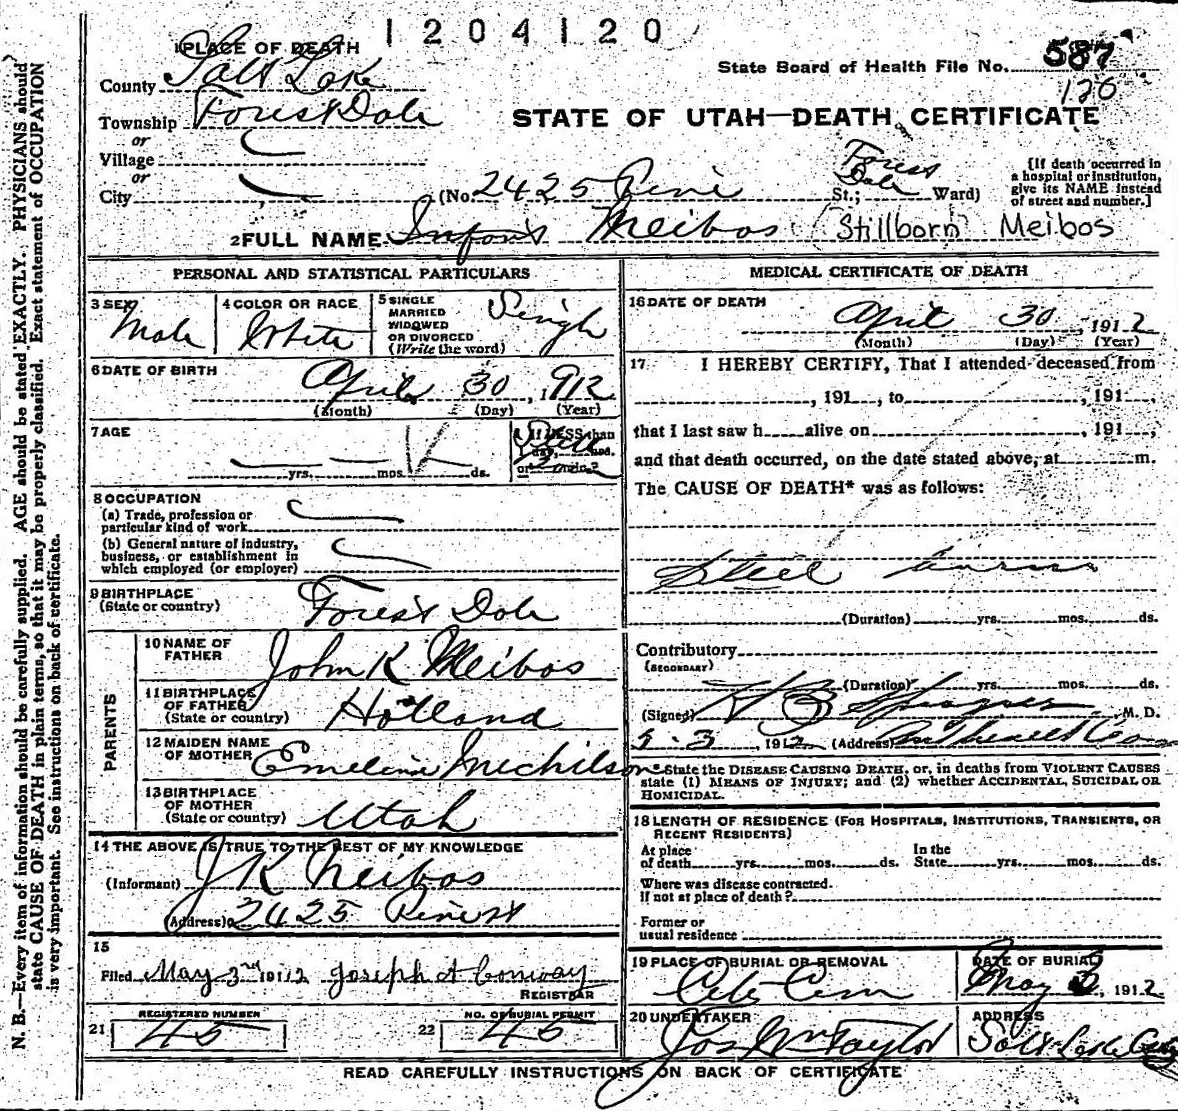 1204120
1 PLACE OF DEATH
State Board of Health File No. 587
126
County Salt Lake
Township Forest Dale
STATE OF UTAH—DEATH CERTIFICATE
or
Village
or
City (No. 2425 Pine St.; Forest Dale Ward)
[If death occurred in a hospital or institution, give its NAME instead of street and number.]
2 FULL NAME Infant Meibos (Stillborn) Meibos
PERSONAL AND STATISTICAL PARTICULARS
3 SEX Male
4 COLOR OR RACE White
5 SINGLE MARRIED WIDOWED OR DIVORCED (Write the word) Single
6 DATE OF BIRTH
April 30, 1912
(Month) (Day) (Year)
7 AGE
yrs. mos. ds.
If LESS than 1 day, hrs. or min.?
Still
8 OCCUPATION
(a) Trade, profession or
particular kind of work
(b) General nature of industry,
business, or establishment in
which employed (or employer)
9 BIRTHPLACE
(State or country) Forest Dale
PARENTS
10 NAME OF
FATHER John K Meibos
11 BIRTHPLACE
OF FATHER
(State or country) Holland
12 MAIDEN NAME
OF MOTHER
13 BIRTHPLACE
OF MOTHER
(State or country) Utah
14 THE ABOVE IS TRUE TO THE BEST OF MY KNOWLEDGE
(Informant) J K Meibos
(Address) 2425 Pine st
15
Filed May 3rd 1912 Joseph A Conway
REGISTRAR
21 REGISTERED NUMBER 45
22 NO. OF BURIAL PERMIT 45
MEDICAL CERTIFICATE OF DEATH
16 DATE OF DEATH
April 30, 1912
(Month) (Day) (Year)
17 I HEREBY CERTIFY, That I attended deceased from
, 191 , to , 191 ,
that I last saw h alive on , 191 ,
and that death occurred, on the date stated above, at m.
The CAUSE OF DEATH* was as follows:
Still
(Duration) yrs. mos. ds.
Contributory
(SECONDARY)
(Duration) yrs. mos. ds.
(Signed) H B M. D.
5-3, 1912 (Address)
*State the DISEASE CAUSING DEATH, or, in deaths from VIOLENT CAUSES
state (1) MEANS OF INJURY; and (2) whether ACCIDENTAL, SUICIDAL OR
HOMICIDAL.
18 LENGTH OF RESIDENCE (FOR HOSPITALS, INSTITUTIONS, TRANSIENTS, OR
RECENT RESIDENTS)
At place of death yrs. mos. ds. In the State yrs. mos. ds.
Where was disease contracted.
if not at place of death?
Former or
usual residence
19 PLACE OF BURIAL OR REMOVAL
City Cem
DATE OF BURIAL
May 3, 1912
20 UNDERTAKER
Jos Wm Taylor
ADDRESS
Salt Lake City
READ CAREFULLY INSTRUCTIONS ON BACK OF CERTIFICATE
N. B.—Every item of information should be carefully supplied. AGE should be stated EXACTLY. PHYSICIANS should
state CAUSE OF DEATH in plain terms, so that it may be properly classified. Exact statement of OCCUPATION
is very important. See instructions on back of certificate.